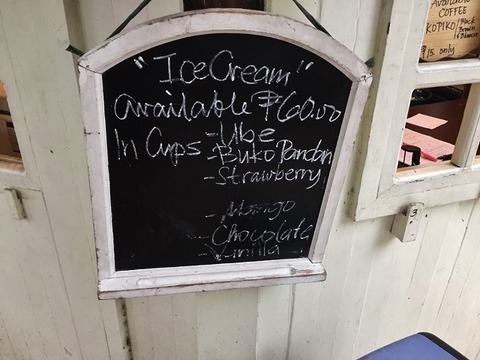 "Ice Cream"
available ₱60.00
In Cups - Ube
- Buko Pandan
- Strawberry
- Mango
- Chocolate
- Vanilla
Available
COFFEE
KOPIKO Black
Brown
₱15 only